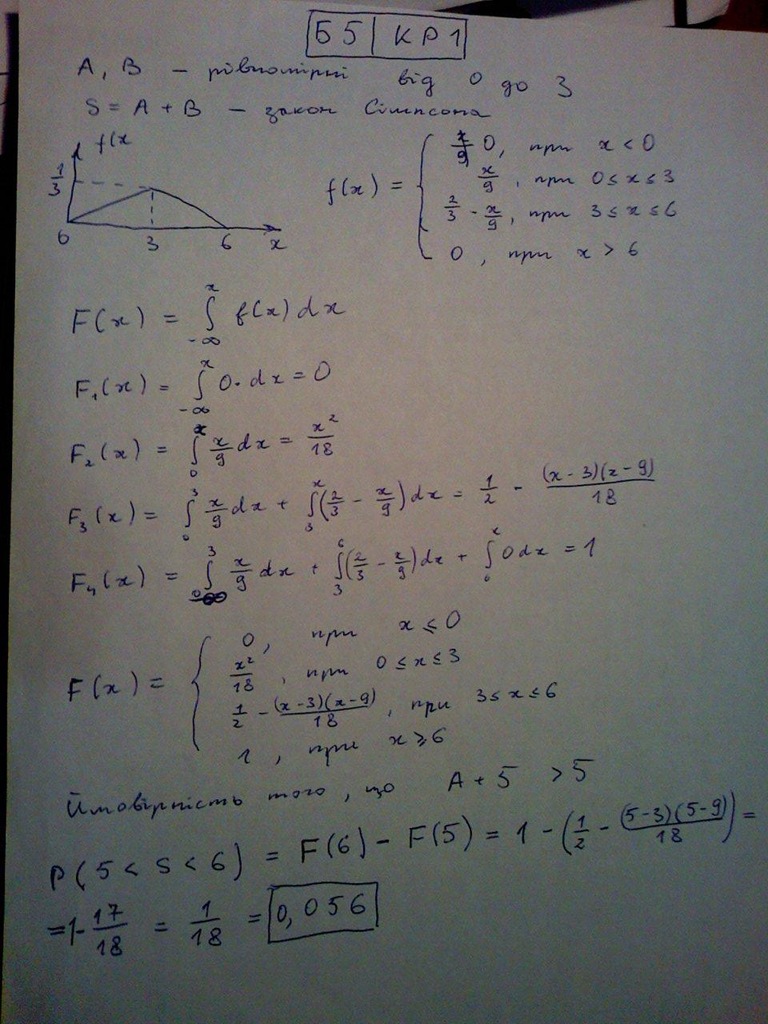 Б5 | КР1
A, B – рівномірні від 0 до 3
S = A + B – закон Сімпсона
f(x
1/3
0 3 6 x
f(x) = { 0, при x < 0
x/9, при 0 ≤ x ≤ 3
2/3 - x/9, при 3 ≤ x ≤ 6
0, при x > 6
F(x) = ∫_{-∞}^{x} f(x) dx
F₁(x) = ∫_{-∞}^{x} 0· dx = 0
F₂(x) = ∫_{0}^{x} x/9 dx = x²/18
F₃(x) = ∫_{0}^{3} x/9 dx + ∫_{3}^{x} (2/3 - x/9) dx = 1/2 - (x-3)(x-9)/18
F₄(x) = ∫_{0}^{3} x/9 dx + ∫_{3}^{6} (2/3 - x/9) dx + ∫_{6}^{x} 0 dx = 1
F(x) = { 0, при x ≤ 0
x²/18, при 0 ≤ x ≤ 3
1/2 - (x-3)(x-9)/18, при 3 ≤ x ≤ 6
1, при x ≥ 6
Ймовірність того, що A + 5 > 5
P(5 < S < 6) = F(6) - F(5) = 1 - (1/2 - (5-3)(5-9)/18) =
= 1 - 17/18 = 1/18 = 0,056